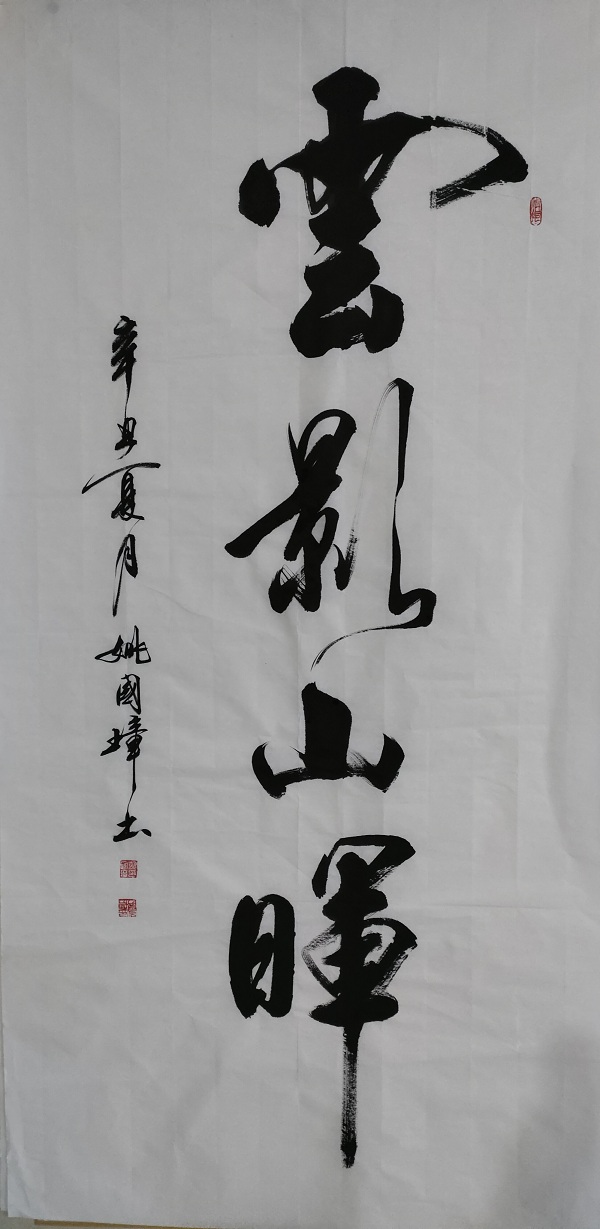 雲影山暉
辛丑夏月姚國璋书